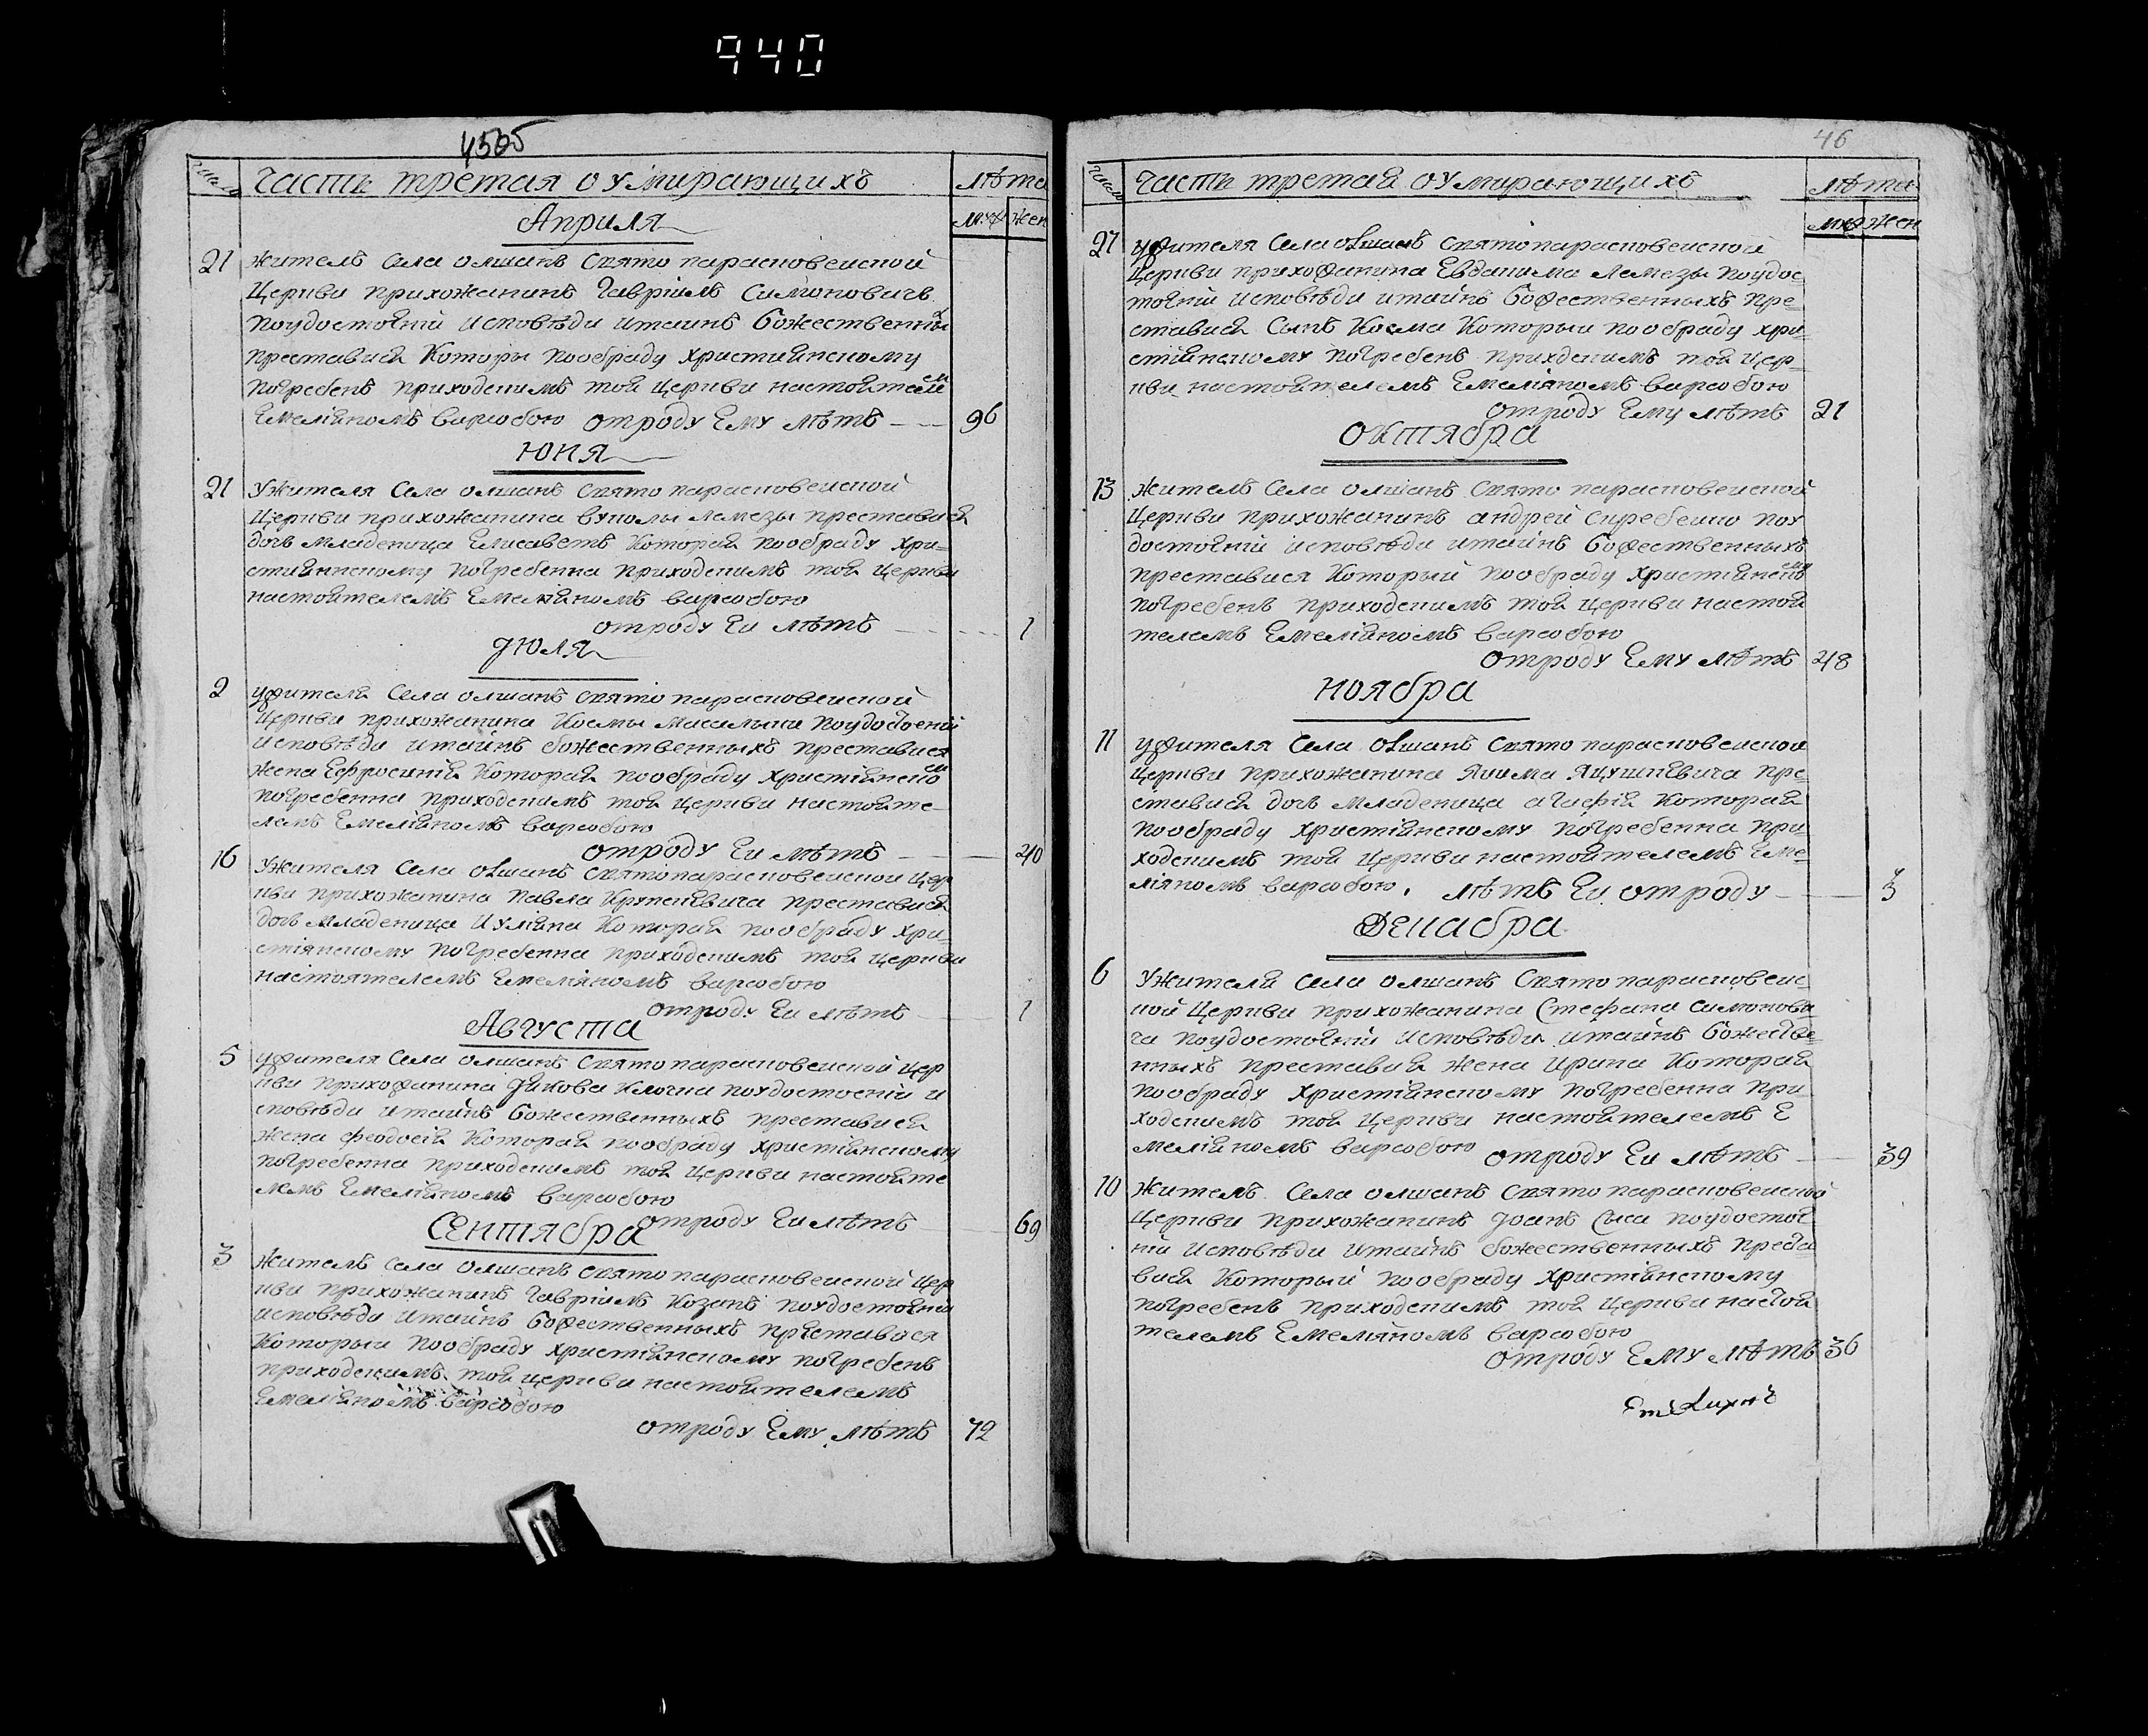 940
4505
Число
Часть третая о умирающихъ
лѣта
муж жен
Априля
21 жителъ села олшанъ свято парасковеиской
Церкви прихожанинъ Гавріилъ Симоновичъ
поудостоенїи исповѣди итаинъ божественных
преставися Которы пообряду християнскому
погребенъ приходскимъ тои Церкви настоятелем
Емеліяномъ варавою отроду Ему лѣтъ 96
юня
21 Ужителя села олшанъ свято парасковеиской
Церкви прихожанина вуколы лемезы преставися
дочъ младеница Елисаветъ Которая пообряду хри-
стиянскому погребенна приходскимъ тои Церкви
настоятелемъ Емеліяномъ
отроду Еи лѣтъ 1
Июля
2 ужителя села олшанъ свято парасковеиской
Церкви прихожанина Космы поудостоенїи
исповѣди итаинъ божественныхъ преставися
жена Ефросинія Которая пообряду христіянском
погребенна приходскимъ тои Церкви настояте-
лемъ Емеліяномъ
отроду Еи лѣтъ 40
16 Ужителя села олшанъ святопарасковеиской Цер
кви прихожанина Павла преставися
дочъ младеница Иуліяна Которая пообряду хри-
стіянскому погребенна приходскимъ тои Церкви
настоятелемъ Емеліяномъ
отроду Еи лѣтъ 1
Августа
5 ужителя села олшанъ свято парасковеиской Цер
кви прихожанина Якова поудостоенїи и
сповѣди итаинъ божественныхъ преставися
жена феодосія Которая пообряду христіянскому
погребенна приходскимъ тои Церкви настояте
лемъ Емеліяномъ
отроду Еи лѣтъ 69
Сентябра
3 жителъ села олшанъ свято парасковеиской Цер
кви прихожанинъ Гавріилъ Козакъ поудостоенїи
исповѣди итаинъ божественныхъ преставися
Которыи пообряду христіянскому погребенъ
приходскимъ тои Церкви настоятелемъ
Емеліяномъ
отроду Ему лѣтъ 72
46
Число
Часть третая о умирающихъ
лѣта
муж жен
27 ужителя села олшанъ святопарасковеиской
Церкви прихожанина Евдакима лемезы поудос-
тоенїи исповѣди итаинъ божественныхъ пре-
ставися сынъ Косма Которыи пообряду хри-
стіянскому погребенъ приходскимъ тои Цер-
кви настоятелемъ Емеліяномъ
отроду Ему лѣтъ 21
Октябра
13 жителъ села олшанъ свято парасковеиской
Церкви прихожанинъ андрей скребейко поу
достоенїи исповѣди итаинъ божественныхъ
преставися Который пообряду христіянском
погребенъ приходскимъ тои Церкви настоя
телемъ Емеліяномъ
отроду Ему лѣтъ 48
Ноябра
11 ужителя села олшанъ свято парасковеиской
Церкви прихожанина Якима Яцушкевича пре-
ставися дочъ младеница агафія Которая
пообряду христіянскому погребенна при-
ходскимъ тои Церкви настоятелемъ Еме-
ліяномъ лѣтъ Еи отроду 3
Декабра
6 Ужителя села олшанъ свято парасковеис-
кой Церкви прихожанина Стефана симонови
ча поудостоенїи исповѣди итаинъ божестве-
нныхъ преставися жена Ирина Которая
пообряду христіянскому погребенна при-
ходскимъ тои Церкви настоятелемъ Е
меліяномъ отроду Еи лѣтъ 39
10 жителъ села олшанъ свято парасковеиской
Церкви прихожанинъ Іоанъ Сыса поудостое
нїи исповѣди итаинъ божественныхъ преста
вися Который пообряду христіянскому
погребенъ приходскимъ тои Церкви настоя
телемъ Емеліяномъ
отроду Ему лѣтъ 36